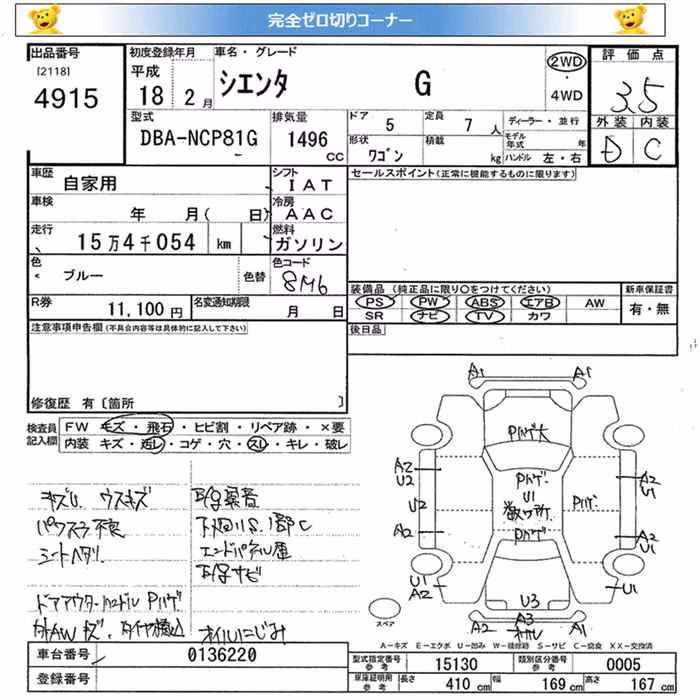 完全ゼロ切りコーナー
出品番号 初度登録年月 車名・グレード 評価点
[2118] 平成 シエンタ G 2WD 3.5
4915 18 2月 4WD
外装 内装
型式 排気量 ドア 5 定員 7人 ディーラー・並行 D C
DBA-NCP81G 1496 cc 形状 ワゴン 積載 kg モデル年式 年
ハンドル 左・右
車歴 自家用 シフト IAT セールスポイント(正常に機能するものに限ります)
車検 年 月( 日) 冷房 AAC
走行 15万4千054 km 燃料 ガソリン
色 ブルー 色替 色コード 8M6
装備品(純正品に限り○をつけてください) 新車保証書
R券 11,100円 名変通知期限 月 日 PS PW ABS エアB AW 有・無
SR ナビ TV カワ
注意事項申告欄(不具合内容等は具体的に記入して下さい) 後日品
修復歴 有〔箇所 〕
検査員記入欄 FW キズ・飛石・ヒビ割・リペア跡・×要
内装 キズ・汚レ・コゲ・穴・スレ・キレ・破レ
A1 A1
Pハゲ大
A2 U2 Pハゲ U1 A2 U1
U2 Pハゲ
A2 Pハゲ A2 U1
U1 A2 U3 U1
A2 A3 A1
キズU ウスキズ
パワスラ不良
シートヘタリ
エンドパネル凹
ドアアウターハンドル Pハゲ
オイルにじみ
スペア
A-キズ E-エクボ U-凹み W-補修跡 S-サビ C-腐食 XX-交換済
車台番号 0136220 型式指定番号 参考 15130 類別区分番号 参考 0005
登録番号 車庫証明用 参考 長さ 410 cm 幅 169 cm 高さ 167 cm